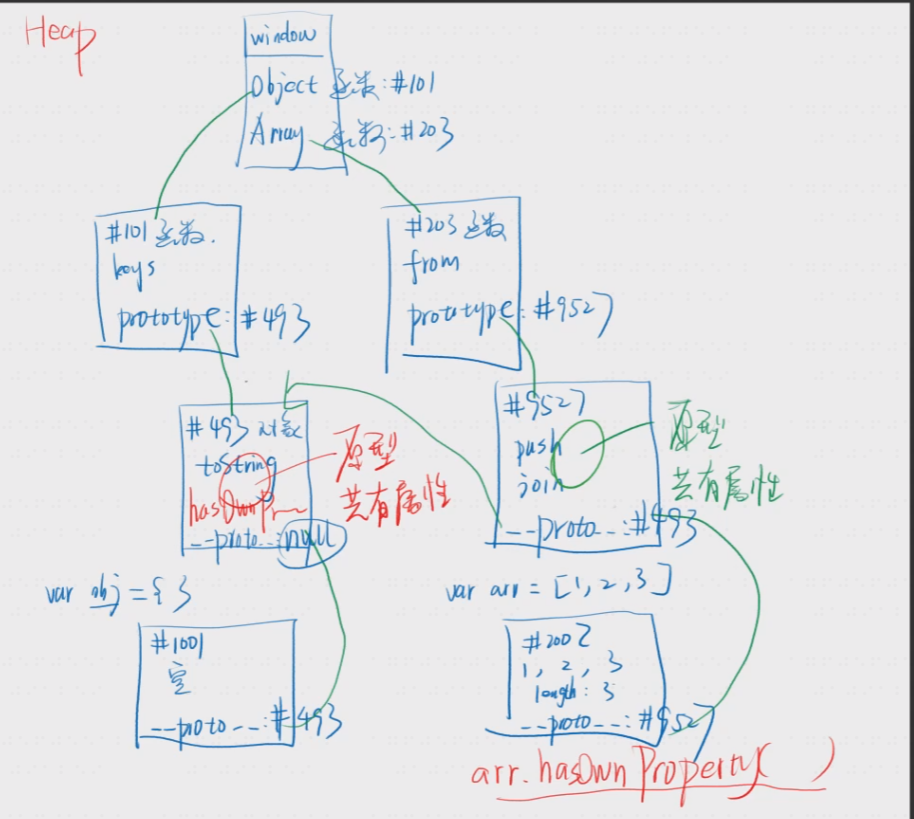 Heap
window
Object 函数:#101
Array 函数:#203
#101 函数.
keys
prototype:#493
#203 函数
from
prototype:#9527
#493 对象
toString
hasOwnPr
__proto__:null
原型
共有属性
#9527
push
join
__proto__:#493
原型
共有属性
var obj = { }
#1001
空
__proto__:#493
var arr = [1, 2, 3]
#2002
1, 2, 3
length: 3
__proto__:#9527
arr.hasOwnProperty( )